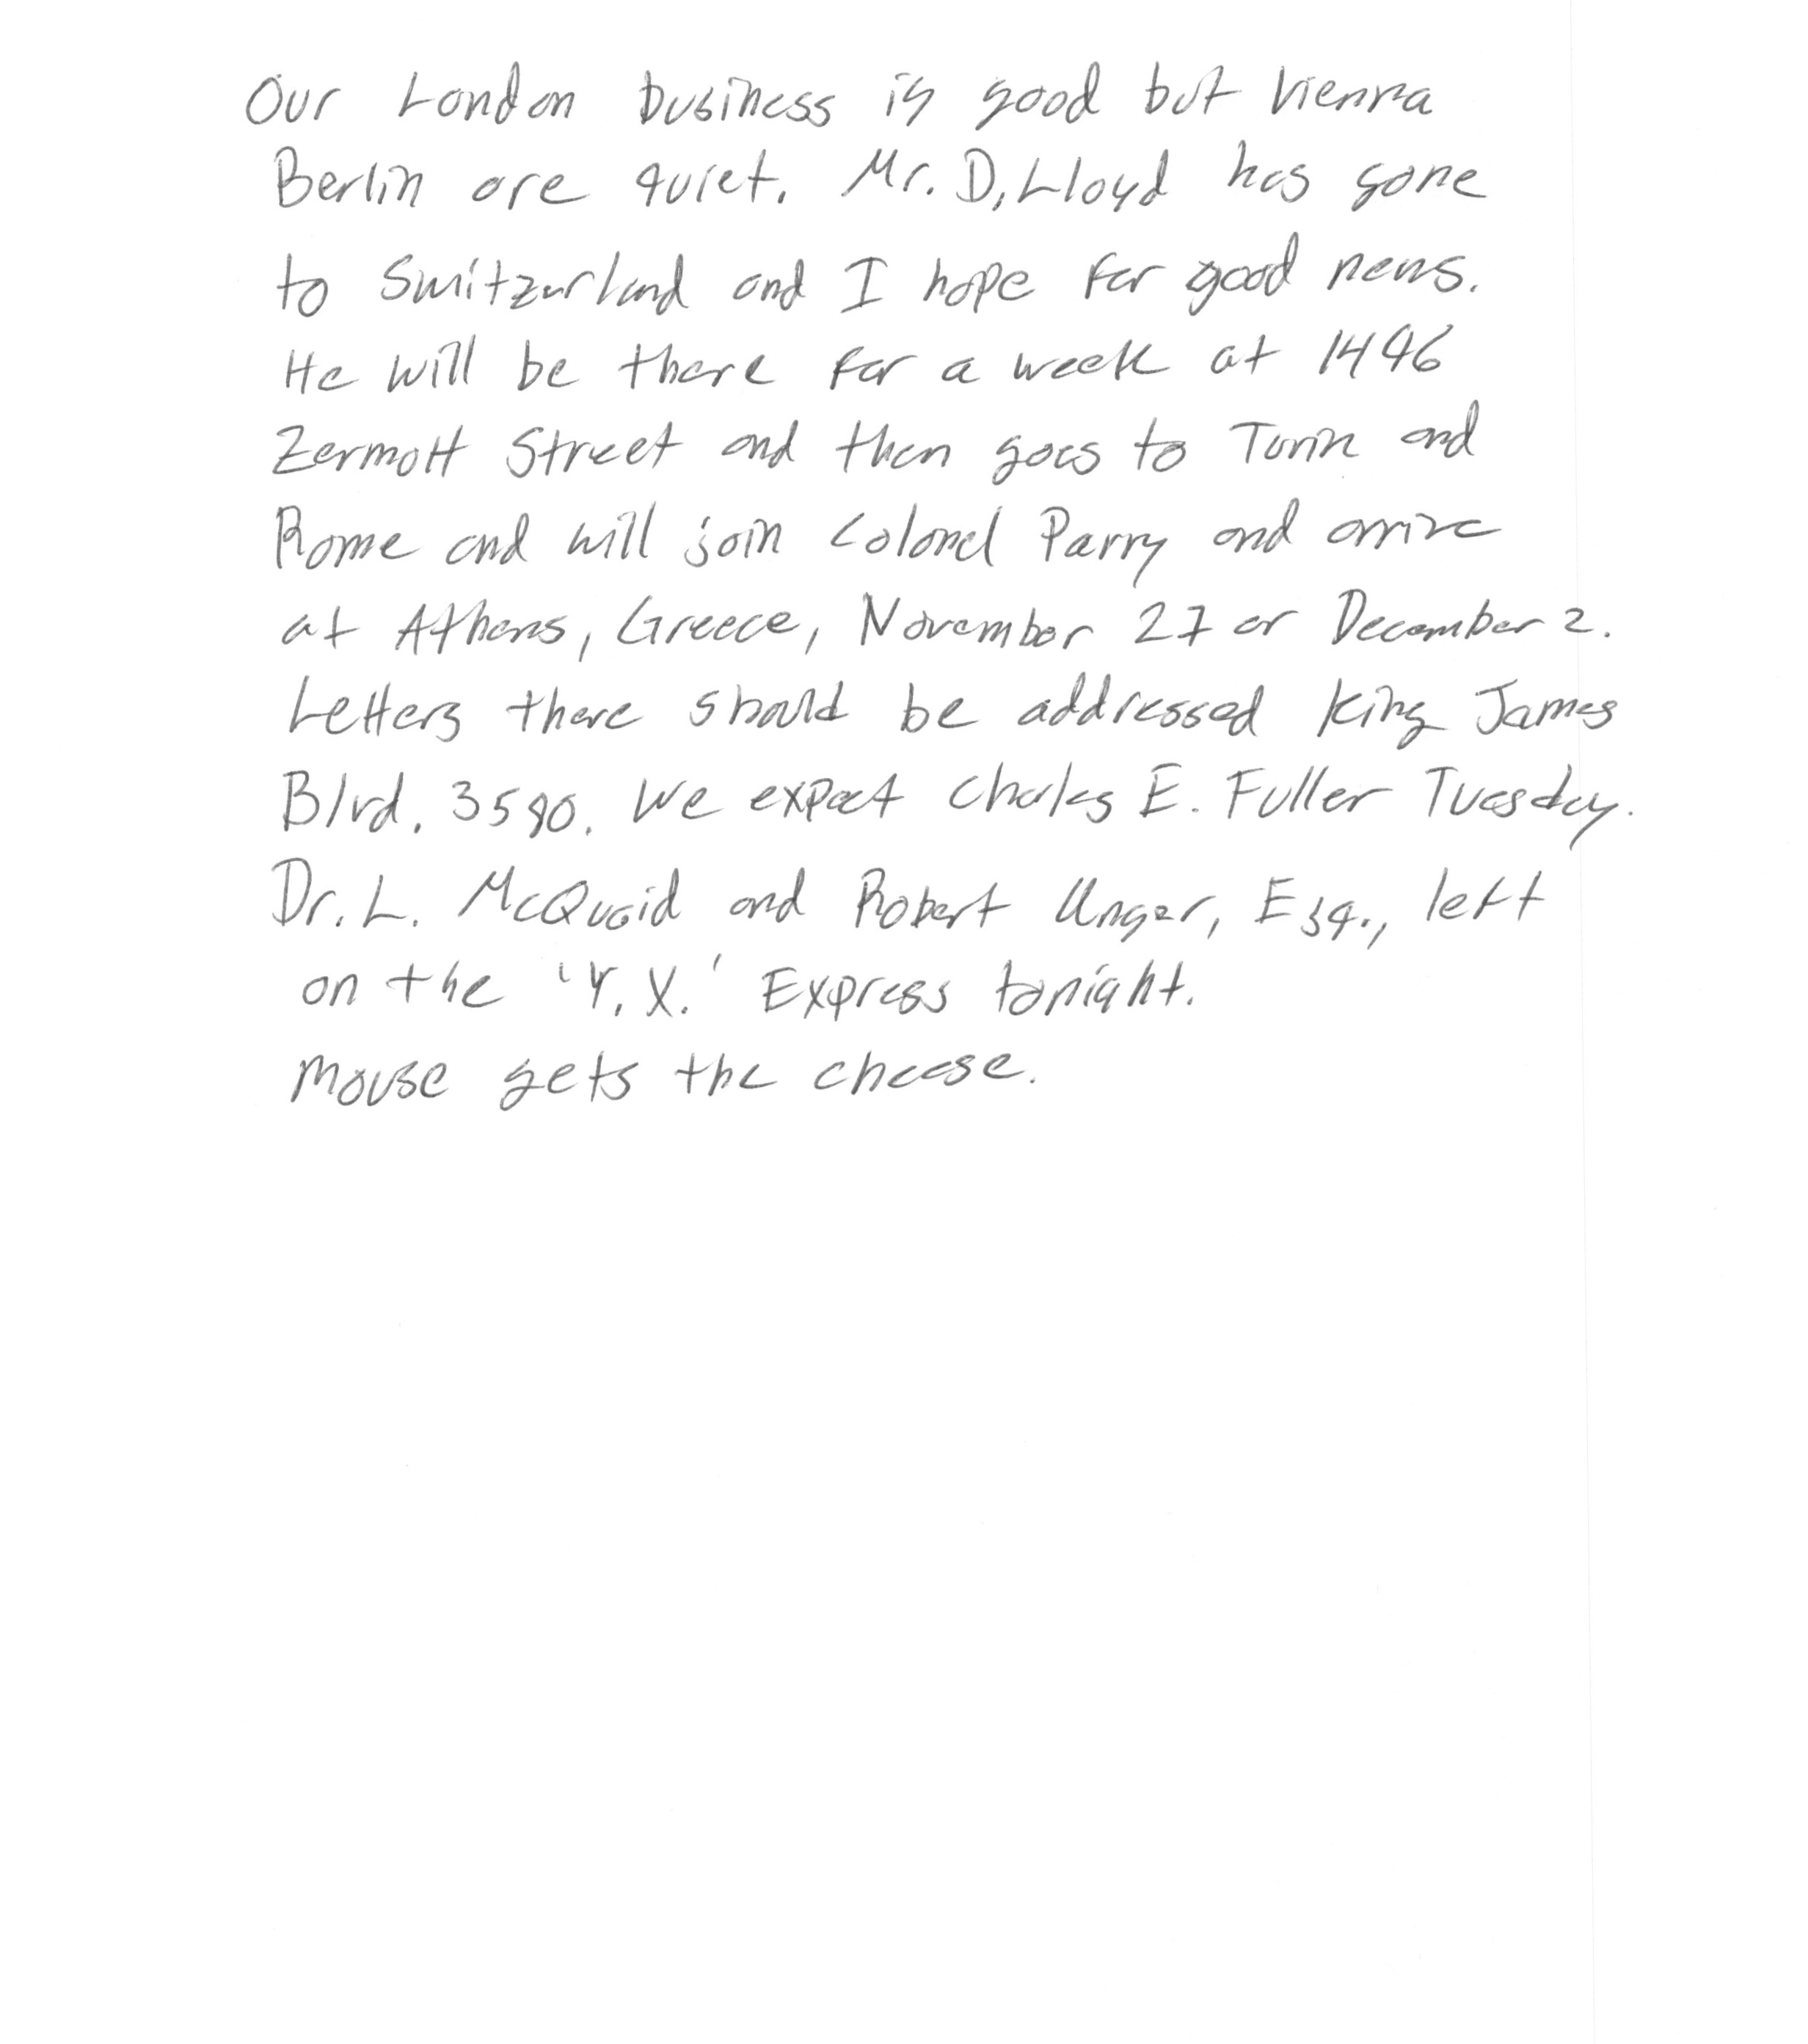 Our London business is good but Vienna
Berlin are quiet. Mr. D. Lloyd has gone
to Switzerland and I hope for good news.
He will be there for a week at 1496
Zermott Street and then goes to Turin and
Rome and will join Colonel Parry and arrive
at Athens, Greece, November 27 or December 2.
Letters there should be addressed King James
Blvd. 3580. We expect Charles E. Fuller Tuesday.
Dr. L. McQuaid and Robert Unger, Esq., left
on the 'Y. X.' Express tonight.
Mouse gets the cheese.